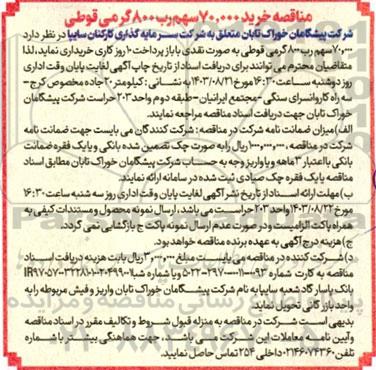 مناقصه خرید ۷۰,۰۰۰ سهم رب ۸۰۰ گرمی قوطی
شرکت پیشگامان خوراک تابان متعلق به شرکت سرمایه گذاری کارکنان سایپا در نظر دارد
۷۰,۰۰۰ سهم رب ۸۰۰ گرمی قوطی به صورت نقدی با باز پرداخت ۱۰ روزی کاری خریداری نماید، لذا
متقاضیان محترم می توانند برای دریافت اسناد از تاریخ چاپ آگهی لغایت پایان وقت اداری
روز دوشنبه ساعت ۱۶:۳۰ مورخ ۱۴۰۳/۰۸/۲۱ به نشانی: کیلومتر ۲۰ جاده مخصوص کرج-
سه راه کاروانسرای سنگی - مجتمع ایرانیان - طبقه دوم واحد ۲۰۳ حراست شرکت پیشگامان
خوراک تابان جهت دریافت اسناد مناقصه مراجعه نمایند.
الف) میزان ضمانت نامه شرکت در مناقصه: شرکت کنندگان می بایست جهت ضمانت نامه
شرکت در مناقصه، ۱,۰۰۰,۰۰۰,۰۰۰ ریال را به صورت چک تضمین شده بانکی و یا یک فقره ضمانت
بانکی با اعتبار ۳ ماهه و یا واریز وجه به حساب شرکت پیشگامان خوراک تابان مطابق اسناد
مناقصه یا یک فقره چک صیادی ثبت شده در سامانه ارائه نمایند.
ب) مهلت ارائه اسناد از تاریخ نشر آگهی لغایت پایان وقت اداری روز سه شنبه ساعت ۱۶:۳۰
مورخ ۱۴۰۳/۰۸/۲۲ واحد ۲۰۳ حراست می باشد، ارسال نمونه محصول و مستندات کیفی به
همراه پاکت الزامیست و در صورت عدم ارسال نمونه پاکت ج بازگشایی نمی گردد.
ج) هزینه درج آگهی به عهده برنده مناقصه خواهد بود.
د) شرکت کننده در مناقصه می بایست مبلغ ۳,۰۰۰,۰۰۰ ریال بابت هزینه دریافت اسناد
مناقصه به کارت شماره ۵۰۲۲-۲۹۷۰-۰۰۱۱-۰۰۹۳ و یا شماره شبا IR۹۷۰۵۷-۰۳۲۲۸۰۱۰۲۰۴۹۹۰۰۱
بانک پاسارگاد شعبه سایپا به نام شرکت پیشگامان خوراک تابان واریز و فیش مربوطه را به
واحد بازرگانی تحویل نماید.
بدیهی است شرکت در مناقصه به منزله قبول شروط و تکالیف مقرر در اسناد مناقصه
و آیین نامه معاملات این شرکت می باشد، جهت هماهنگی بیشتر با شماره
تلفن ۰۲۱۴۶۰۷۴۳۶۰ داخلی ۲۵۴ تماس حاصل نمایید.